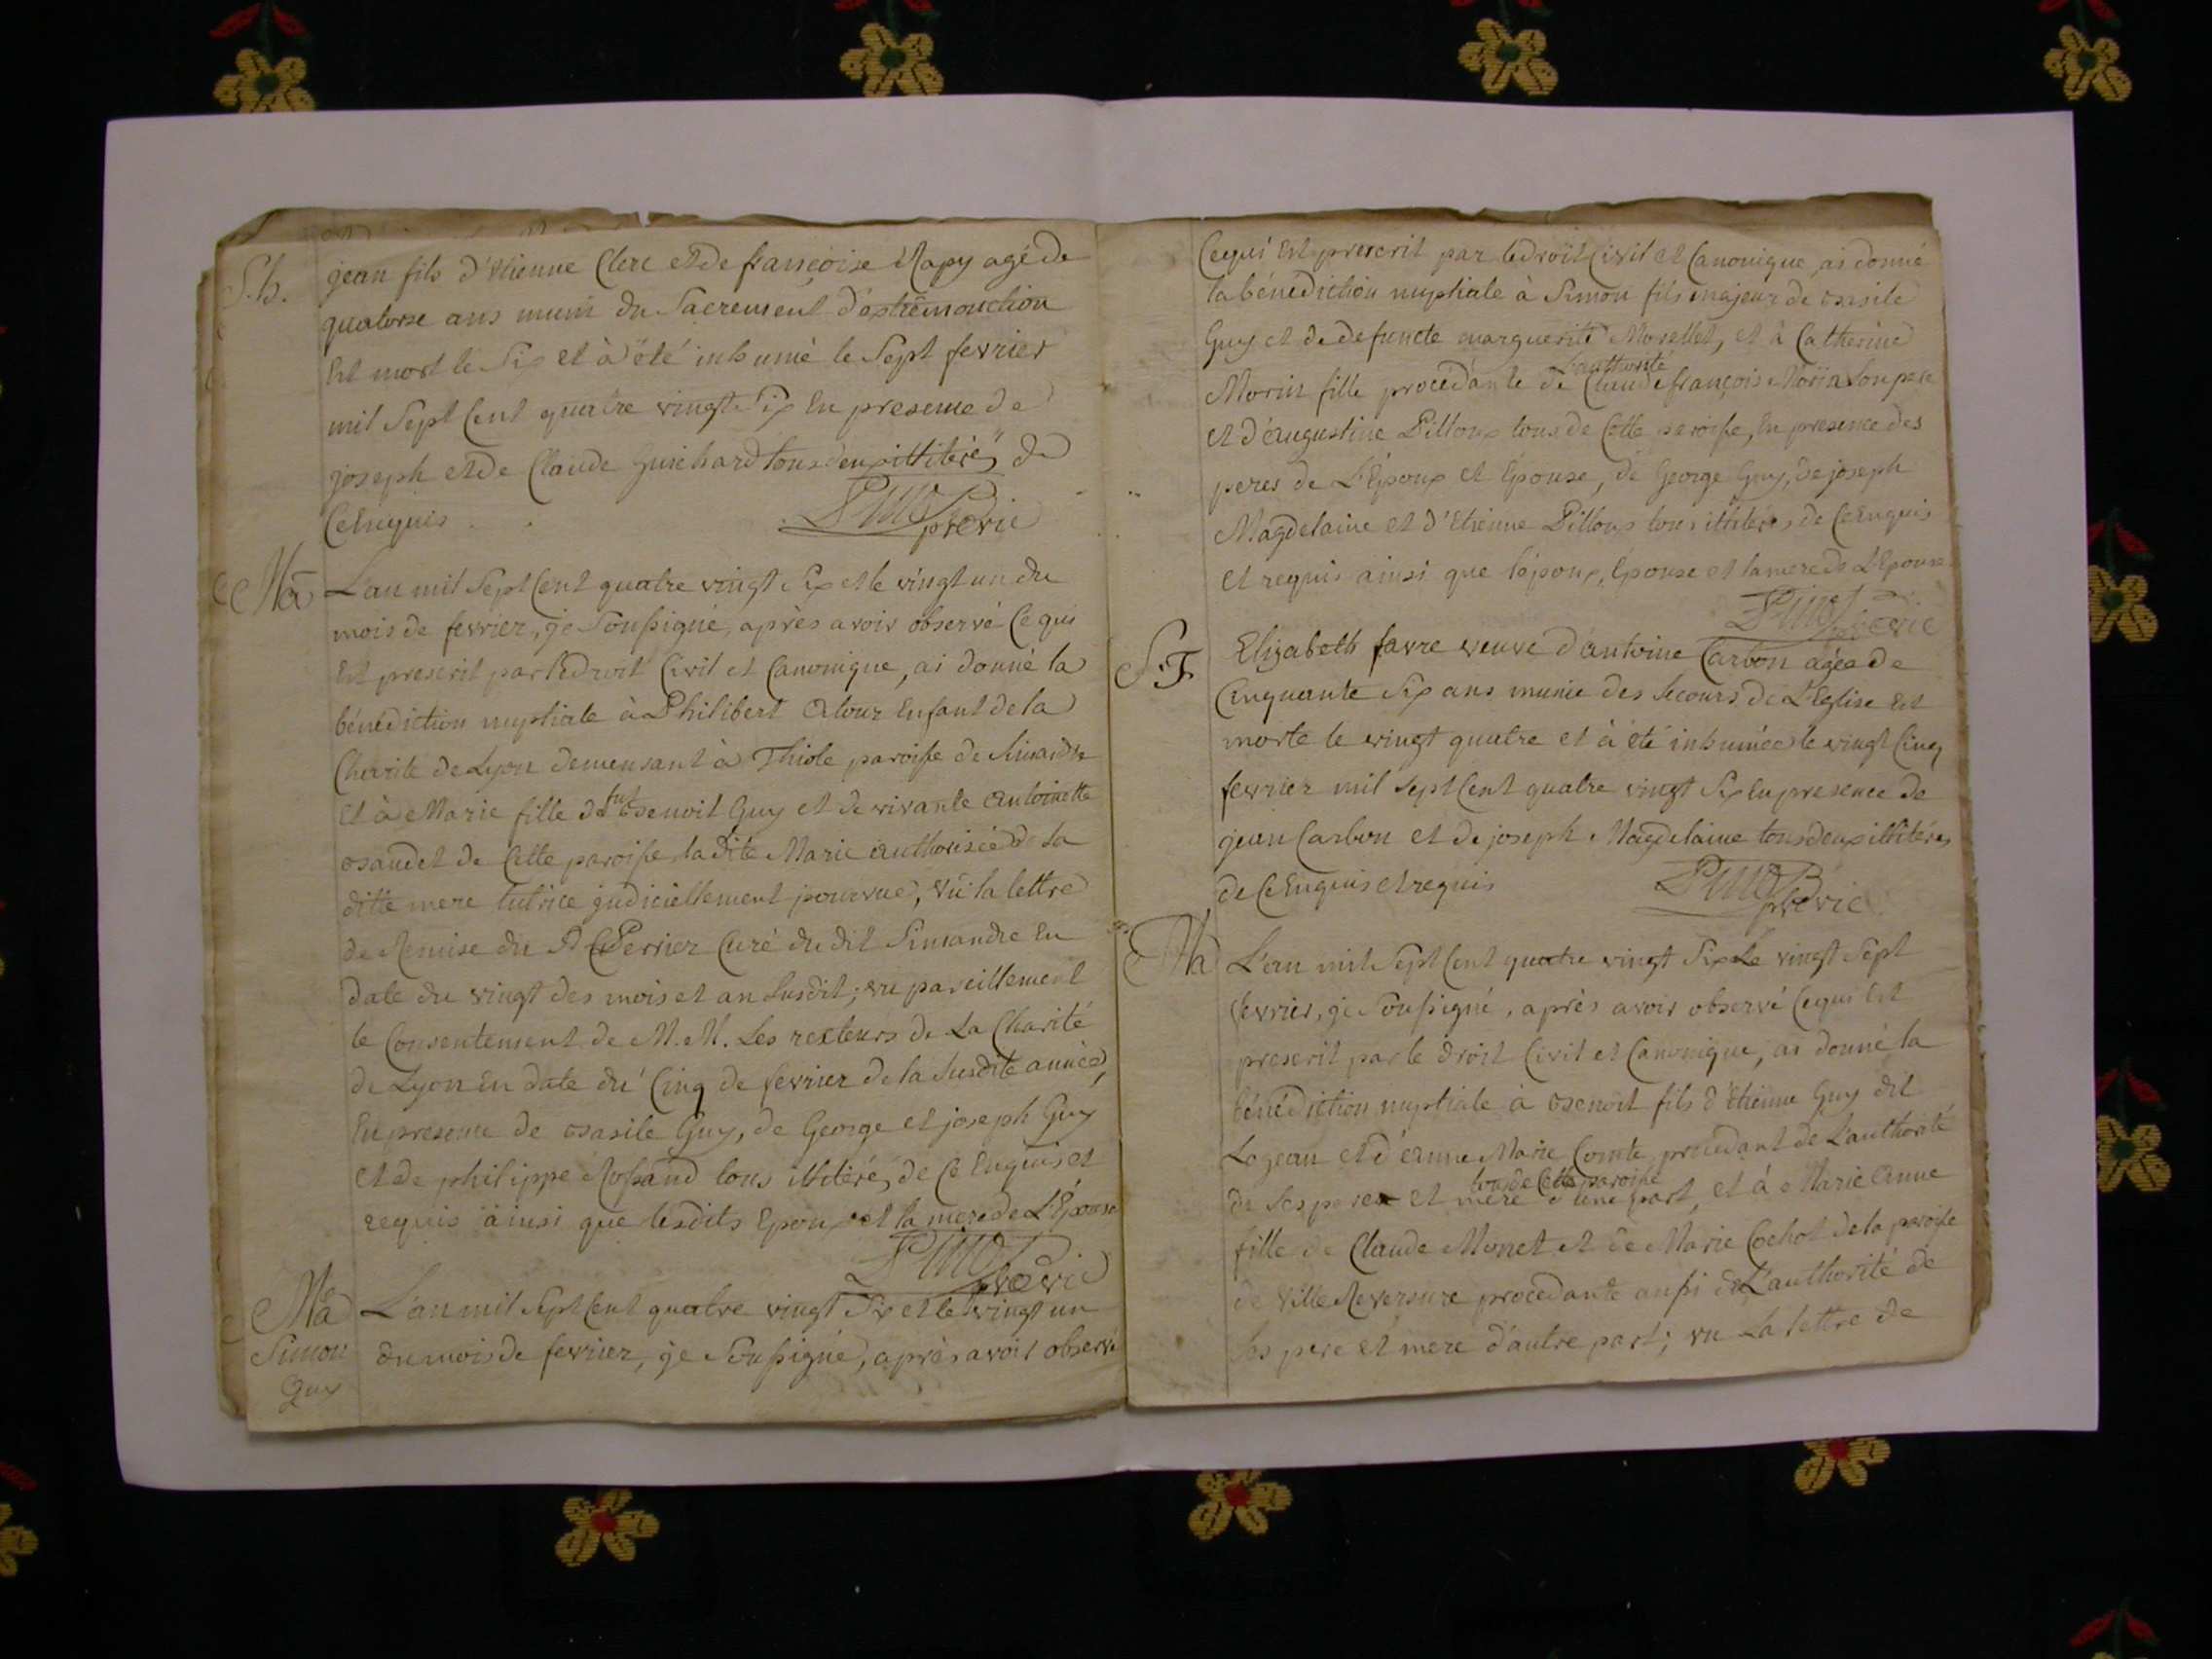 S.h.
jean fils d'Etienne Clerc et de françoise Rapy agé de
quatorse ans muni du Sacrement d'extrêmonction
Est mort le Six et à été inhumé le Sept fevrier
mil Sept Cent quatre vingt Six En presence de
joseph et de Claude Guichard tous deux illitéré, de
Ce Enquis
previc
Ma
L'an mil Sept Cent quatre vingt Six et le vingt un du
mois de fevrier, je Soussigné, après avoir observé Ce qui
Est prescrit par le Droit Civil et Canonique, ai donné la
bénédiction nuptiale à Philibert Atour Enfant de la
Charité de Lyon demeurant à Thiole paroisse de Simandre
et à Marie fille de fut Benoit Guy et de vivante Antoinette
Baudet de Cette paroisse, la dite Marie authorisée de sa
ditte mere tutrice judiciellement pourvue, vû la lettre
de Remise du Perrier Curé du dit Simandre En
date du vingt des mois et an Susdit; vu pareillement
le Consentement de M.M. Les recteurs de La Charité
de Lyon En date du Cinq de fevrier de la Susdite année,
En presence de Basile Guy, de George et joseph Guy
et de philippe Rossand tous illitéré, de Ce Enquis et
requis ainsi que lesdits Epoux et la mere de L'Epouse
previc
Ma
Simon
Guy
L'an mil Sept Cent quatre vingt Six et le vingt un
du mois de fevrier, je Soussigné, après avoir observé
Ce qui Est prescrit par le Droit Civil et Canonique, ai donné
la bénédiction nuptiale à Simon fils majeur de Basile
Guy et de defuncte marguerite Morellet, et à Catherine
Morin fille procédante de L'authorité Claude françois Morin Son pere
et d'Augustine Pilloux tous de Cette paroisse, En presence des
peres de L'Epoux et Epouse, de George Guy, de joseph
Magdelaine et d'Etienne Pilloux tous illitérés de Ce Enquis
et requis ainsi que l'époux, Epouse et la mere de L'Epouse
previc
S.F
Elizabeth favre veuve d'antoine Carbon agée de
Cinquante Six ans munie des Secours de L'Eglise Est
morte le vingt quatre et à été inhumée le vingt Cinq
fevrier mil Sept Cent quatre vingt Six En presence de
jean Carbon et de joseph Magdelaine tous deux illitérés
de Ce Enquis et requis
previc
Ma
L'an mil Sept Cent quatre vingt Six Le vingt Sept
fevrier, je Soussigné, après avoir observé Ce qui Est
prescrit par le droit Civil et Canonique, ai donné la
bénédiction nuptiale à Benoit fils d'Etienne Guy dit
Lagean et d'Anne Marie Comte procédant de L'authorité
de Ses pere et mere tous de Cette paroisse d'une part, et à Marie Anne
fille de Claude Monet et de Marie Cochot de la paroisse
de Ville Reversure procedante aussi de L'authorité de
Ses pere et mere d'autre part; vu La lettre de